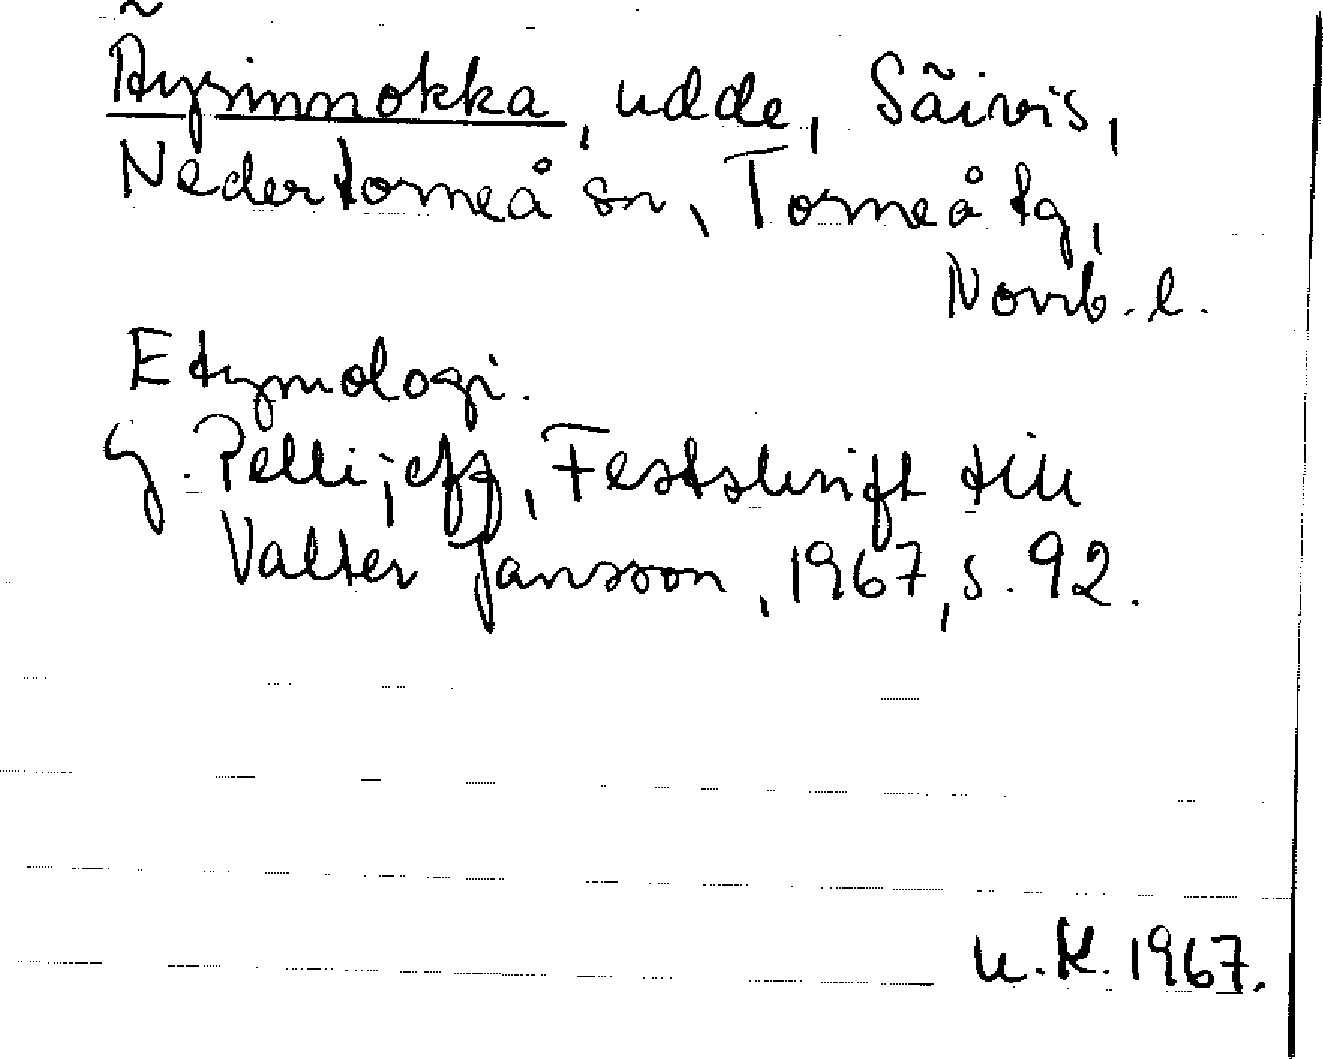 Äyrinnokka, udde, Säivis,
Nedertorneå sn, Torneå tg,
Norrb. l.
Etymologi.
G. Pellijeff, Festskrift till
Valter Jansson, 1967, s. 92.
U.K. 1967.